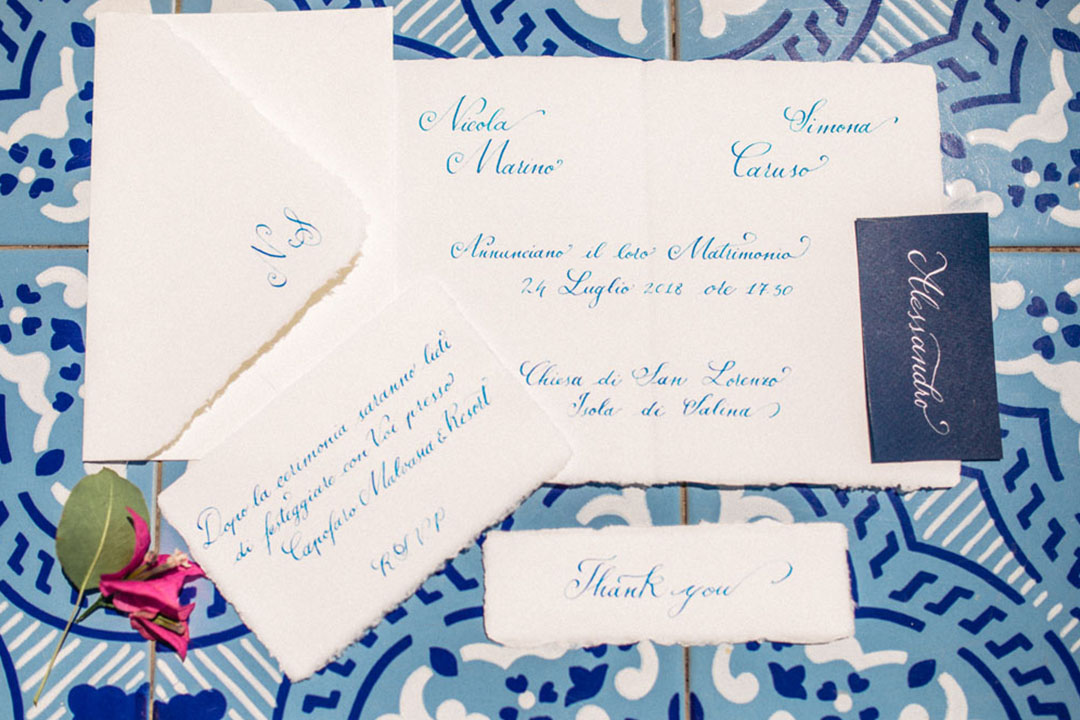 N&S
Nicola
Marino
Simona
Caruso
Annunciano il loro Matrimonio
24 Luglio 2018 ore 17.30
Chiesa di San Lorenzo
Isola di Salina
Alessandro
Dopo la cerimonia saranno lieti
di festeggiare con Voi presso
Capofaro Malvasia & Resort
RSVP
Thank you